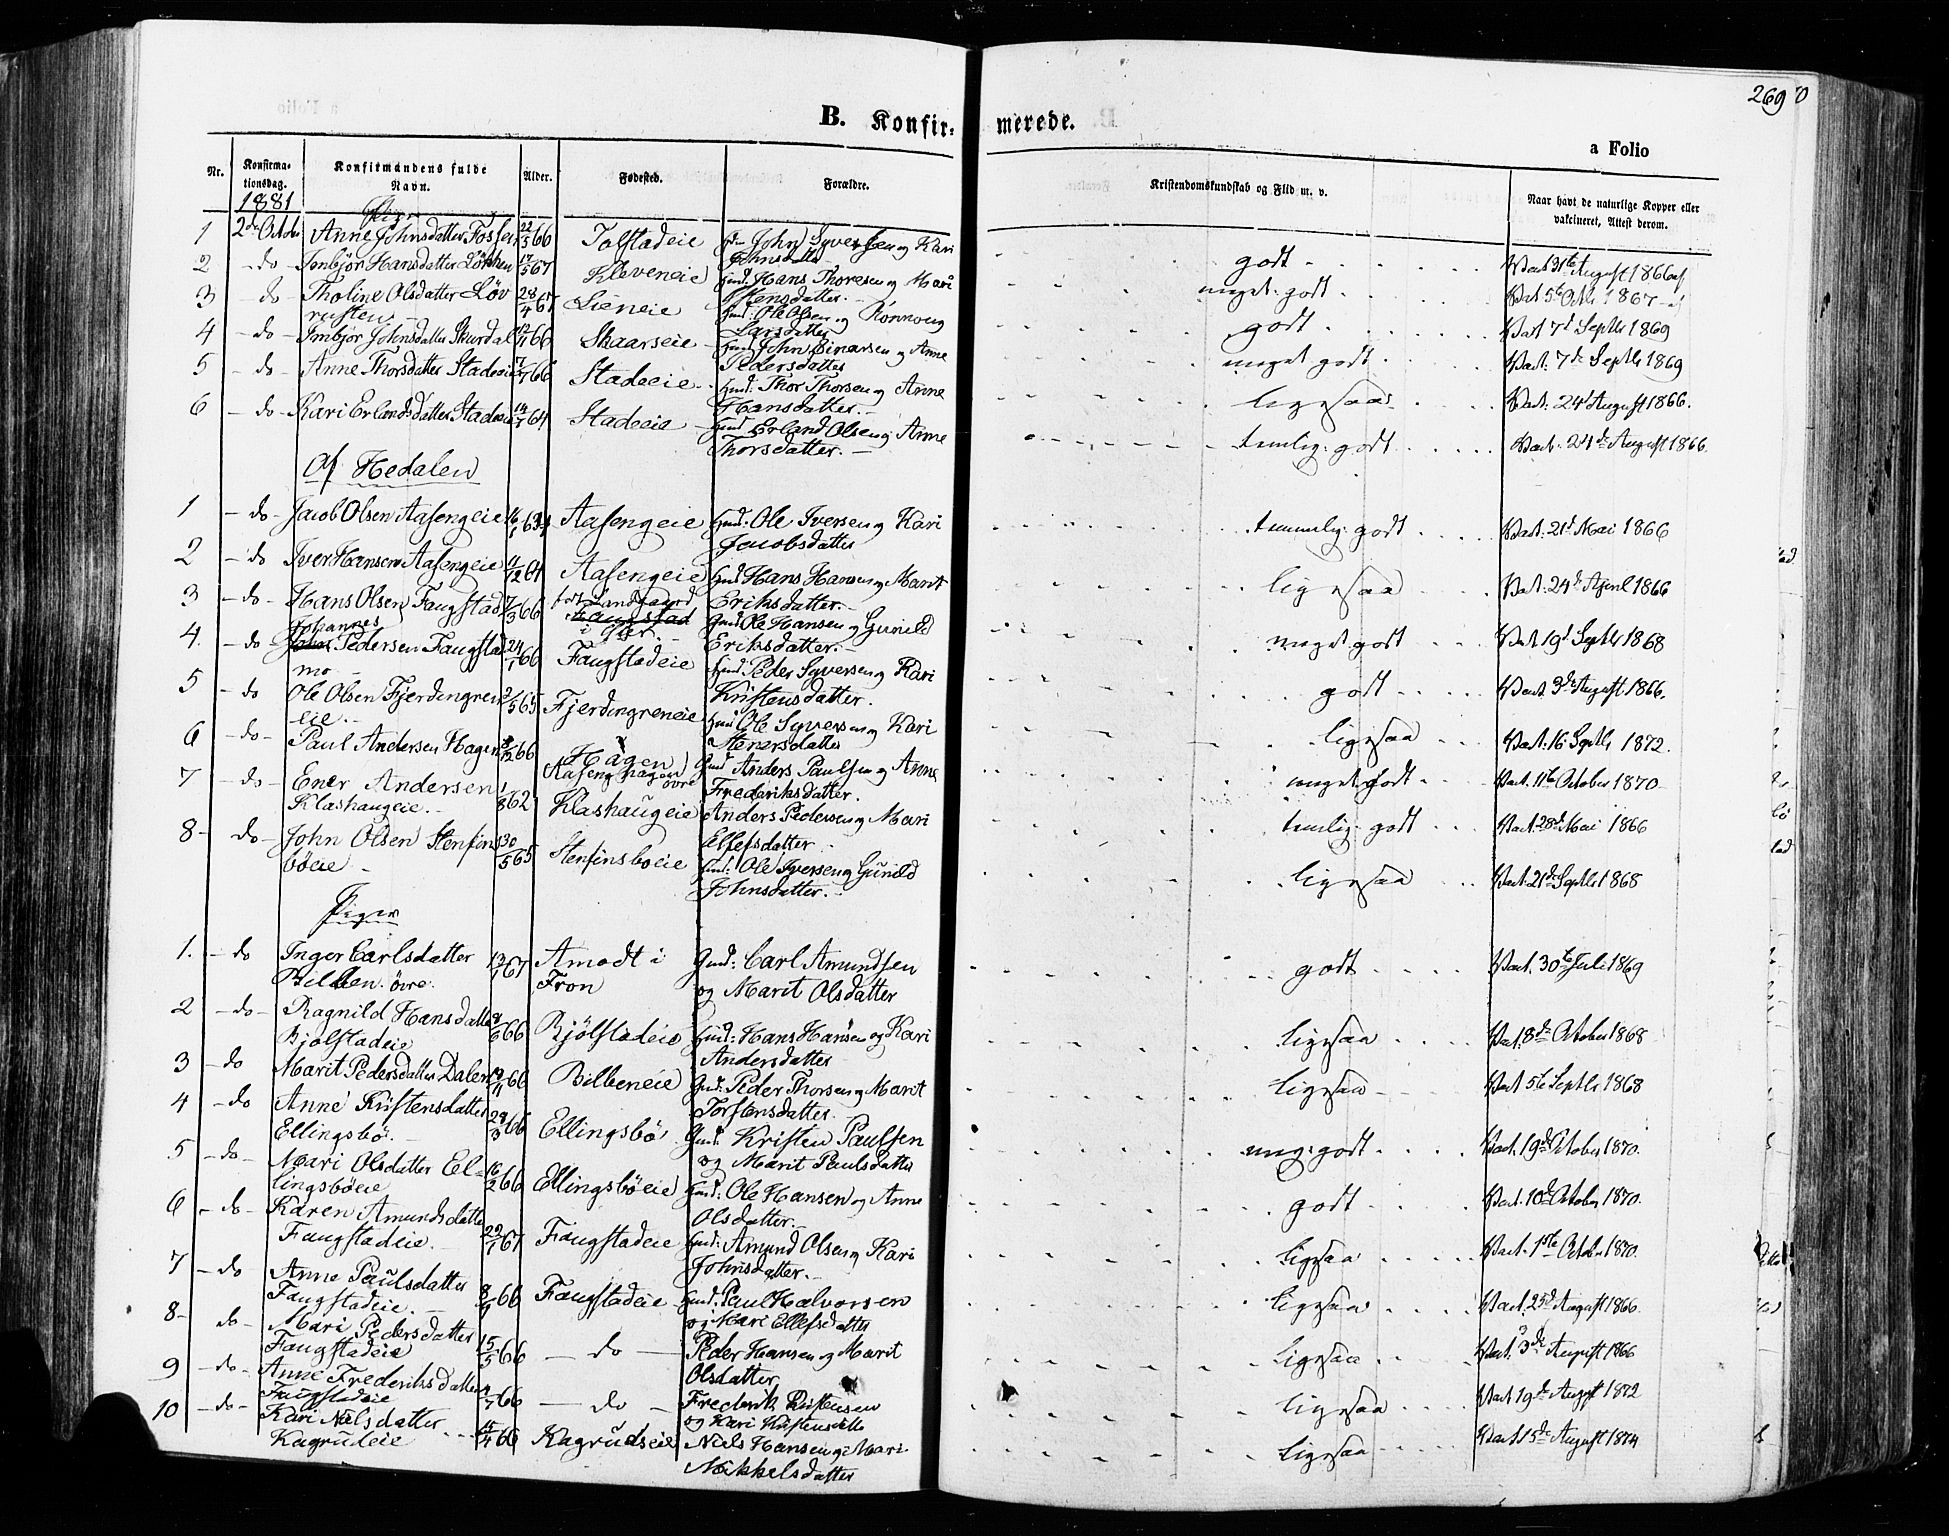 269
B. Konfir- merede.
a Folio
Nr. Konfirma-tionsdag. Konfirmandens fulde Navn. Alder. Fødested. Forældre. Kristendomskundskab og Flid m. v. Naar havt de naturlige Kopper eller vakcineret, Attest derom.
1881
1 2de Octobr Anne Johnsdatter Fossen 22/5 66 Tolstadeie John Syversen og Kari Johnsdatter godt Vact. 31te August 1866
2 do Imbjør Hansdatter Løkken 17/5 67 Kleveneie Huusmd: Hans Thoresen og Mari Stensdatter. meget godt Vact 5te Octbr 1867
3 do Tholine Olsdatter Løvrusten 28/4 67 Lieneie Ole Olsen og Rønnoug Larsdatter godt Vact 7d Septbr 1869
4 do Imbjør Johnsdatter Skurdal 66 Skaarseie John Einarsen og Anne Pedersdatter meget godt Vact. 7de Septbr 1869
5 do Anne Thorsdatter Stadeeie 66 Stadeeie Thor Thorsen og Anne Hansdatter. ligesaa Vact. 24 August 1866.
6 do Kari Erlandsdatter Stadeeie 64 Stadeeie Erland Olsen og Anne Thorsdatter. temlig: godt Vact. 24de August 1866.
Af Hedalen
1 do Jacob Olsen Aasengeie 63 Aasengeie Ole Iversen og Kari Jacobsdatter temmelig: godt Vact. 21d Mai 1866
2 do Iver Hansen Aasengeie 11/12 64 Aasengeie Hans Hansen og Marit Eriksdatter. ligesaa Vact. 24de April 1866
3 do Hans Olsen Faugstad 7/3 66 Faugstad Ole Hansen og Gunild Eriksdatter. meget godt Vact 19d Septbr 1868
4. do Johannes Pedersen Faugstadmo 24/1 66 Faugstadeie Peder Syversen og Kari Kristensdatter. godt Vact. 3de August 1866.
5 do Ole Olsen Fjerdingreneie 2/5 65 Fjerdingreneie Ole Syversen og Kari Stenersdatter ligesaa Vact. 16 Septbr 1872.
6 do Paul Andersen Hagen 66 Hagen Aasenghagen øvre Anders Paulsen og Anne Frederiksdatter. meget godt Vact. 11te October 1870
7 do Ener Andersen Klashaugeie. 1/8 62 Klashaugeie Anders Pedersen og Mari Ellefsdatter temlig: godt Vact. 28d Mai 1866
8 do John Olsen Stenfinsbøeie 30/5 65 Stenfinsboeie Ole Iversen og Gunild Johnsdatter. ligesaa Vact. 21de Septbr 1868
Piger
1. do Inger Carlsdatter Bilben øvre. 13/1 67 Amodt i Fron Gmd: Carl Amundsen og Marit Olsdatter godt Vact. 30te Juli 1869
2 do Ragnild Hansdatter Bjølstadeie 8/6 66 Bjølstadeie Hans Hansen og Kari Andersdatter ligesaa Vact. 8de October 1868
3 do Marit Pedersdatter Dalen 66 Bilbeneie Gmd: Peder Thorsen og Marit Torstensdatter ligesaa Vact 5te Septbr 1868
4 do Anne Kristensdatter Ellingsbø. 28/3 66 Ellingsbø Gmd: Kristen Paulsen og Marit Paulsdatter meg: godt Vact. 19de October 1870.
5 do Mari Olsdatter Ellingsbøeie 16/2 66 Ellingsbøeie Ole Hansen og Anne Olsdatter. godt Vact. 10de October 1870.
6 do Karen Amundsdatter Faugstadeie. 22/1 67 Faugstadeie Amund Olsen og Kari Johnsdatter. ligesaa Vact. 1ste Octobr 1870.
7 do Anne Paulsdatter Faugstadeie. 66 Faugstadeie Paul Halvorsen og Mari Ellefsdatter ligesaa Vact. 25d August 1866.
8 do Mari Pedersdatter Faugstadeie 15/5 66 do Peder Hansen og Marit Olsdatter ligesaa Vact. 3de August 1866
9 do Anne Frederiksdatter Faugstadeie 66 do Frederik Kristensen og Kari Kristensdatter ligesaa Vact 19de August 1872
10 do Kari Nielsdatter Kagrudeie 66 Kagrudseie Niels Hansen og Mari Nikkelsdatter ligesaa Vact 15de August 1874